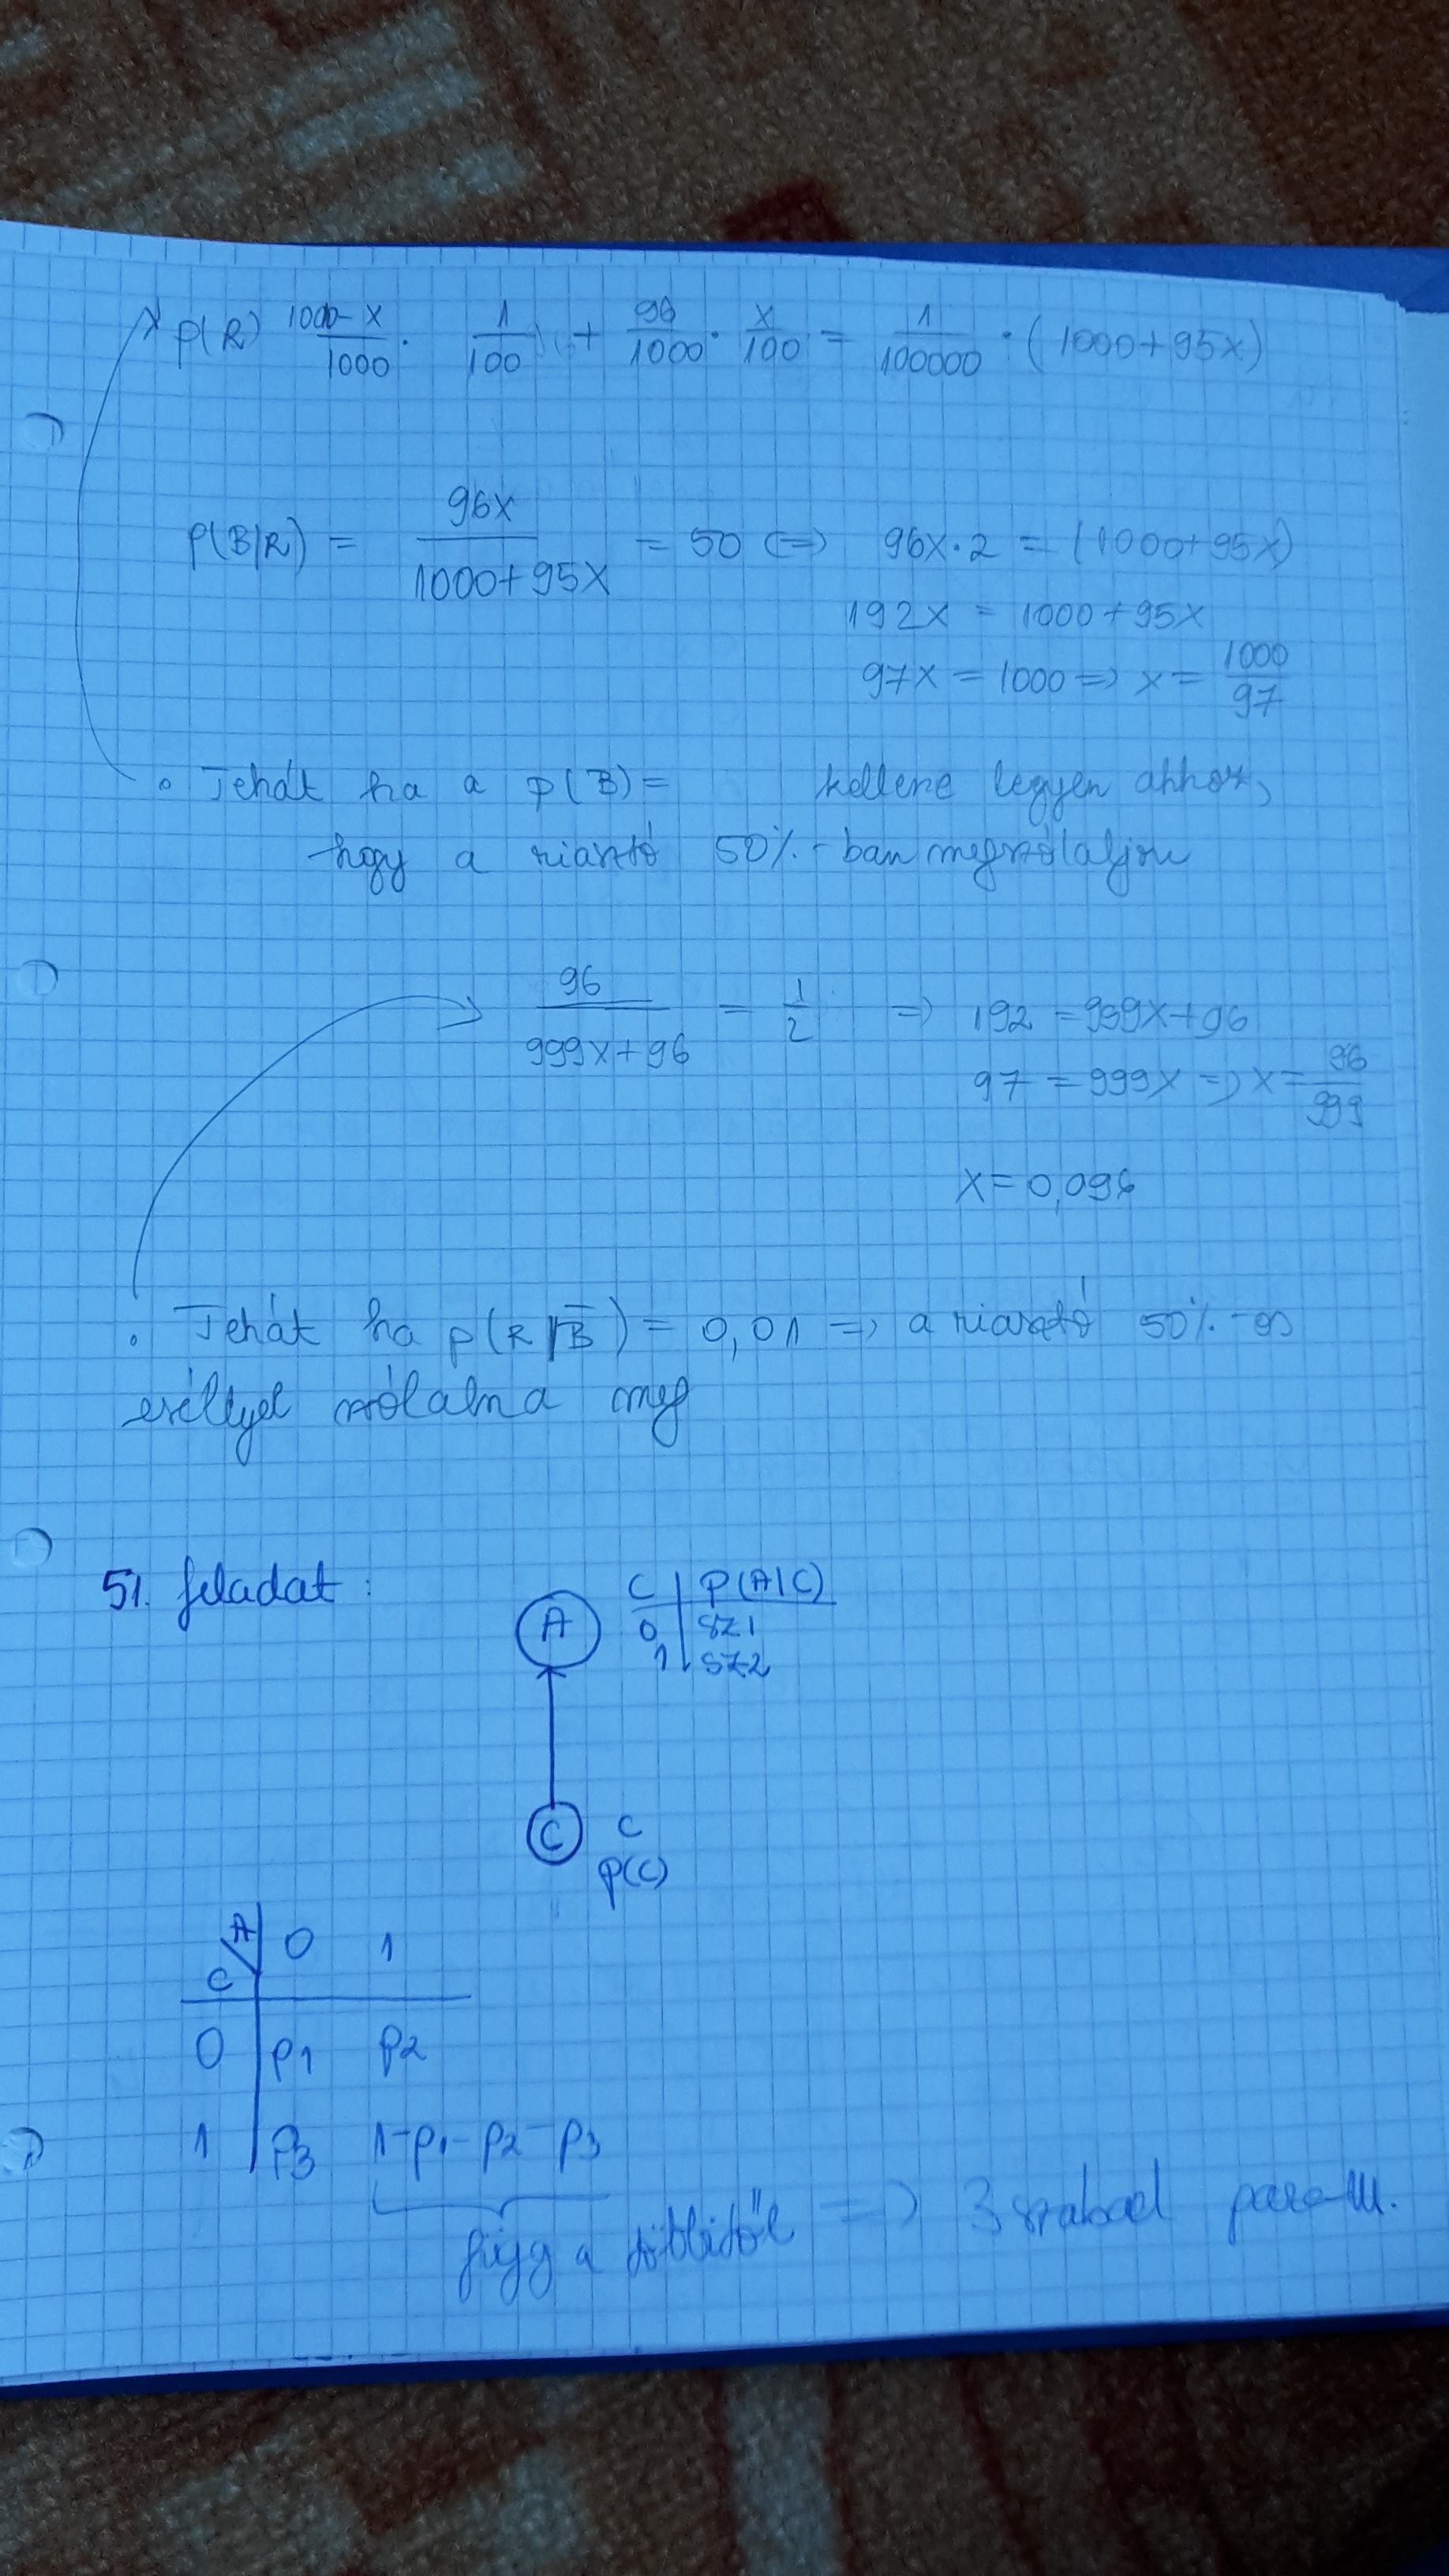 p(R) 1000-x/1000 · 1/100 + 96/1000 · x/100 = 1/100000 · (1000+95x)
p(B|R) = 96x/1000+95x = 50 <=> 96x·2 = (1000+95x)
192x = 1000+95x
97x = 1000 => x = 1000/97
• Tehát ha a p(B) = kellene legyen ahhoz,
hogy a riasztó 50%-ban megszólaljon
96/999x+96 = 1/2 => 192 = 999x+96
97 = 999x => x = 96/999
x = 0,096
• Tehát ha p(R|B̅) = 0,01 => a riasztó 50%-os
eséllyel szólalna meg
51. feladat:
A
C | P(A|C)
0 | sz1
1 | sz2
C
C
p(C)
A
C
0 1
0 p1 p2
1 p3 1-p1-p2-p3
függ a többitől => 3 szabad